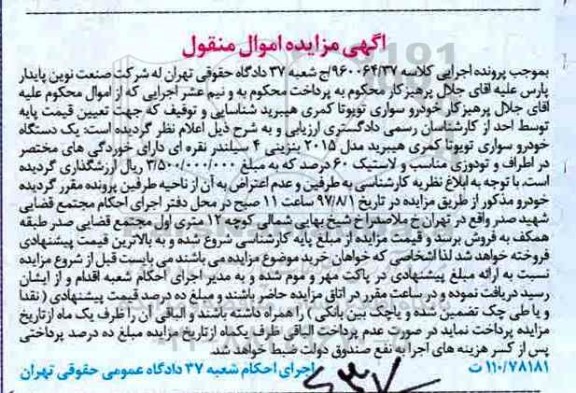 آگهی مزایده اموال منقول
بموجب پرونده اجرایی کلاسه ۹۶۰۰۶۴/۳۷/ج شعبه ۳۷ دادگاه حقوقی تهران له شرکت صنعت نوین پایدار
پارس علیه آقای جلال پرهیزکار محکوم به پرداخت محکوم به و نیم عشر اجرایی که از اموال محکوم علیه
آقای جلال پرهیزکار خودرو سواری تویوتا کمری هیبرید شناسایی و توقیف که جهت تعیین قیمت پایه
توسط احد از کارشناسان رسمی دادگستری ارزیابی و به شرح ذیل اعلام نظر گردیده است: یک دستگاه
خودرو سواری تویوتا کمری هیبرید مدل ۲۰۱۵ بنزینی ۴ سیلندر نقره ای دارای خوردگی های مختصر
در اطراف و تودوزی مناسب و لاستیک ۶۰ درصد که به مبلغ ۳/۵۰۰/۰۰۰/۰۰۰ ریال ارزشگذاری گردیده
است. با توجه به ابلاغ نظریه کارشناسی به طرفین و عدم اعتراض به آن از ناحیه طرفین پرونده مقرر گردیده
خودرو مذکور از طریق مزایده در تاریخ ۹۷/۸/۱ ساعت ۱۱ صبح در محل دفتر اجرای احکام مجتمع قضایی
شهید صدر واقع در تهران خ ملاصدرا خ شیخ بهایی شمالی کوچه ۱۲ متری اول مجتمع قضایی صدر طبقه
همکف به فروش برسد و قیمت مزایده از مبلغ پایه کارشناسی شروع شده و به بالاترین قیمت پیشنهادی
فروخته خواهد شد لذا اشخاصی که خواهان خرید موضوع مزایده می باشند می بایست قبل از شروع مزایده
نسبت به ارائه مبلغ پیشنهادی در پاکت مهر و موم شده و به مدیر اجرای احکام شعبه اقدام و از ایشان
رسید دریافت نموده و در ساعت مقرر در اتاق مزایده حاضر باشند و مبلغ ده درصد قیمت پیشنهادی ( نقدا
و یا طی چک تضمین شده و یا چک بین بانکی ) را همراه داشته باشند و الباقی آن را ظرف یک ماه از تاریخ
مزایده پرداخت نماید در صورت عدم پرداخت الباقی ظرف یکماه از تاریخ مزایده مبلغ ده درصد پرداختی
پس از کسر هزینه های اجرا به نفع صندوق دولت ضبط خواهد شد.
۱۱۰/۷۸۱۸۱ ت اجرای احکام شعبه ۳۷ دادگاه عمومی حقوقی تهران